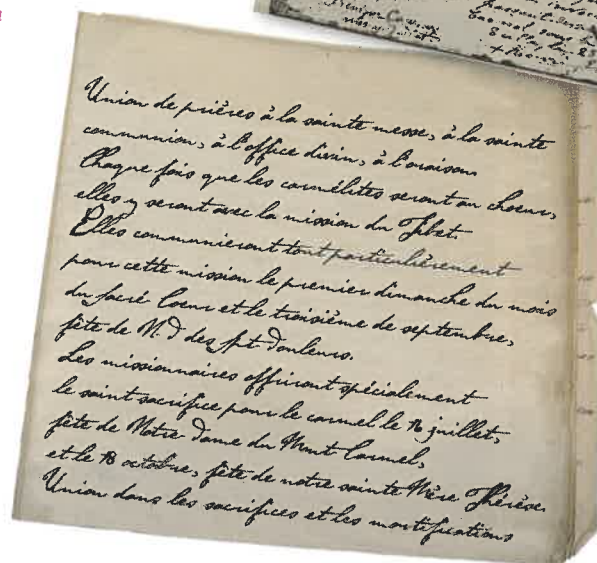 Union de prières à la sainte messe, à la sainte
communion, à l'office divin, à l'oraison.
Chaque fois que les carmélites seront au choeur,
elles y seront avec la mission du Tibet.
Elles communieront tout particulièrement
pour cette mission le premier dimanche du mois
du Sacré Coeur et le troisième de septembre,
fête de N.D des spt. Douleurs.
Les missionnaires offriront spécialement
le saint sacrifice pour le carmel le 16 juillet,
fête de Notre Dame du Mont Carmel,
et le 18 octobre, fête de notre sainte Mère Thérèse.
Union dans les sacrifices et les mortifications